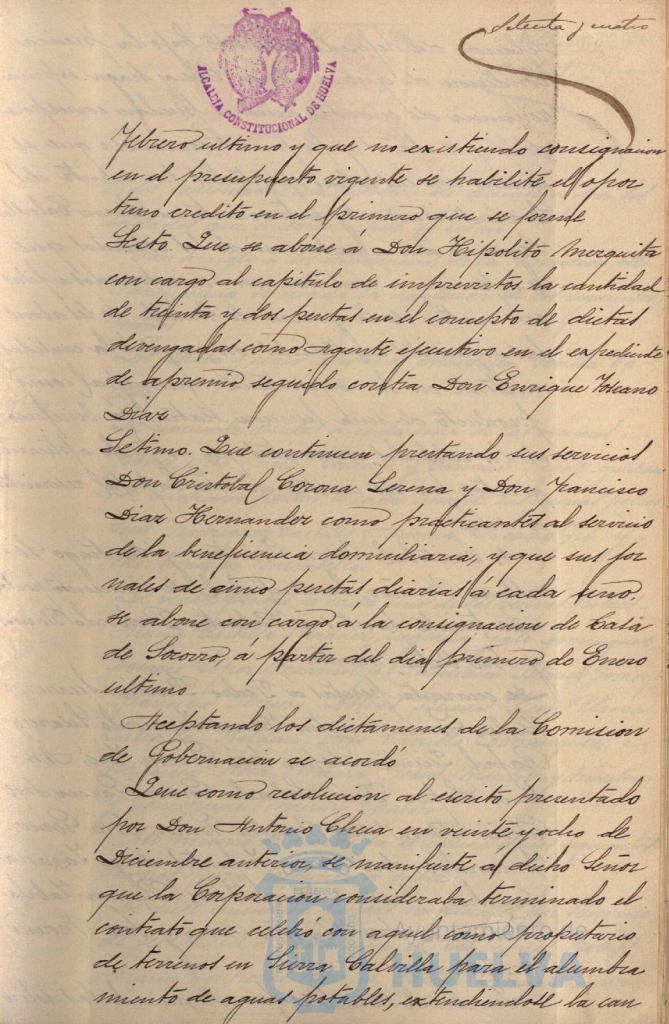 Setenta y cuatro
ALCALDIA CONSTITUCIONAL DE HUELVA
Febrero ultimo y que no existiendo consignacion
en el presupuesto vigente se habilite el opor
tuno credito en el primero que se forme
Sesto. Que se abone á Don Hipolito Mezquita
con cargo al capitulo de imprevistos la cantidad
de treinta y dos pesetas en el concepto de dietas
devengadas como Agente ejecutivo en el expediente
de apremio seguido contra Don Enrique Toscano
Diaz
Setimo. Que continuen prestando sus servicios
Don Cristobal Corona Lerena y Don Francisco
Diaz Hernandez como practicantes al servicio
de la beneficencia domiciliaria, y que sus jor
nales de cinco pesetas diarias á cada uno,
se abone con cargo á la consignacion de Casa
de Socorro, á partir del dia primero de Enero
ultimo
Aceptando los dictamenes de la Comision
de Gobernacion se acordó
Que como resolucion al escrito presentado
por Don Antonio Checa en veinte y ocho de
Diciembre anterior, se manifieste á dicho Señor
que la Corporacion consideraba terminado el
contrato que celebró con aquel como propietario
de terrenos en Sierra Calvilla para el alumbra
miento de aguas potables, extendiendose la can
Ayuntamiento de
HUELVA